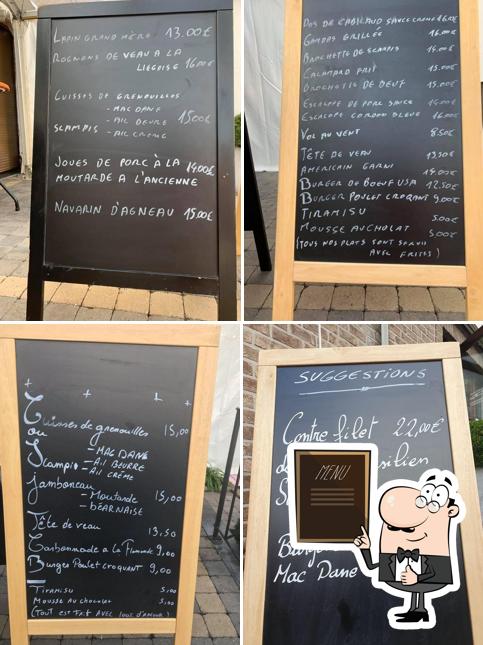 LAPIN GRAND MÈRE 13.00€
ROGNONS DE VEAU A LA
LIEGOISE 16.00€
CUISSES DE GRENOUILLES
- MAC DANE
- AIL BEURRE 15.00€
SCAMPIS - AIL CREME
JOUES DE PORC À LA 14.00€
MOUTARDE A L'ANCIENNE
NAVARIN D'AGNEAU 15.00€
DOS DE CABILLAUD SAUCE
GAMBAS GRILLÉE 16.00€
BROCHETTE DE SCAMPIS 15.00€
CALAMARD FRIT 15.00€
BROCHETTE DE BŒUF 15.00€
ESCALOPE DE PORC SAUCE 14.00€
ESCALOPE CORDON BLEUE 16.00€
VOL AU VENT 8.50€
TÊTE DE VEAU 13.50€
AMERICAIN GARNI 14.00€
BURGER DE BOEUF USA 12.50€
BURGER POULET CROQUANT 9,00€
TIRAMISU 5.00€
MOUSSE AU CHOLAT 5,00€
(TOUS NOS PLATS SONT SERVIS
AVEC FRITES)
Cuisses de grenouilles 15,00
ou - MAC DANE
Scampis - Ail BEURRE
- Ail CRÈME
Jambonneau
- Moutarde 15,00
- BÉARNAISE
Tête de veau
13,50
Carbonnade a la Flamande 9,00
Burger Poulet CROQUANT 9,00
TIRAMISU 5,00
MOUSSE AU CHOCOLAT 5,00
(TOUT EST FAIT AVEC 1000% D'AMOUR)
SUGGESTIONS
Contre filet 22,00€
MENU
Mac Dane